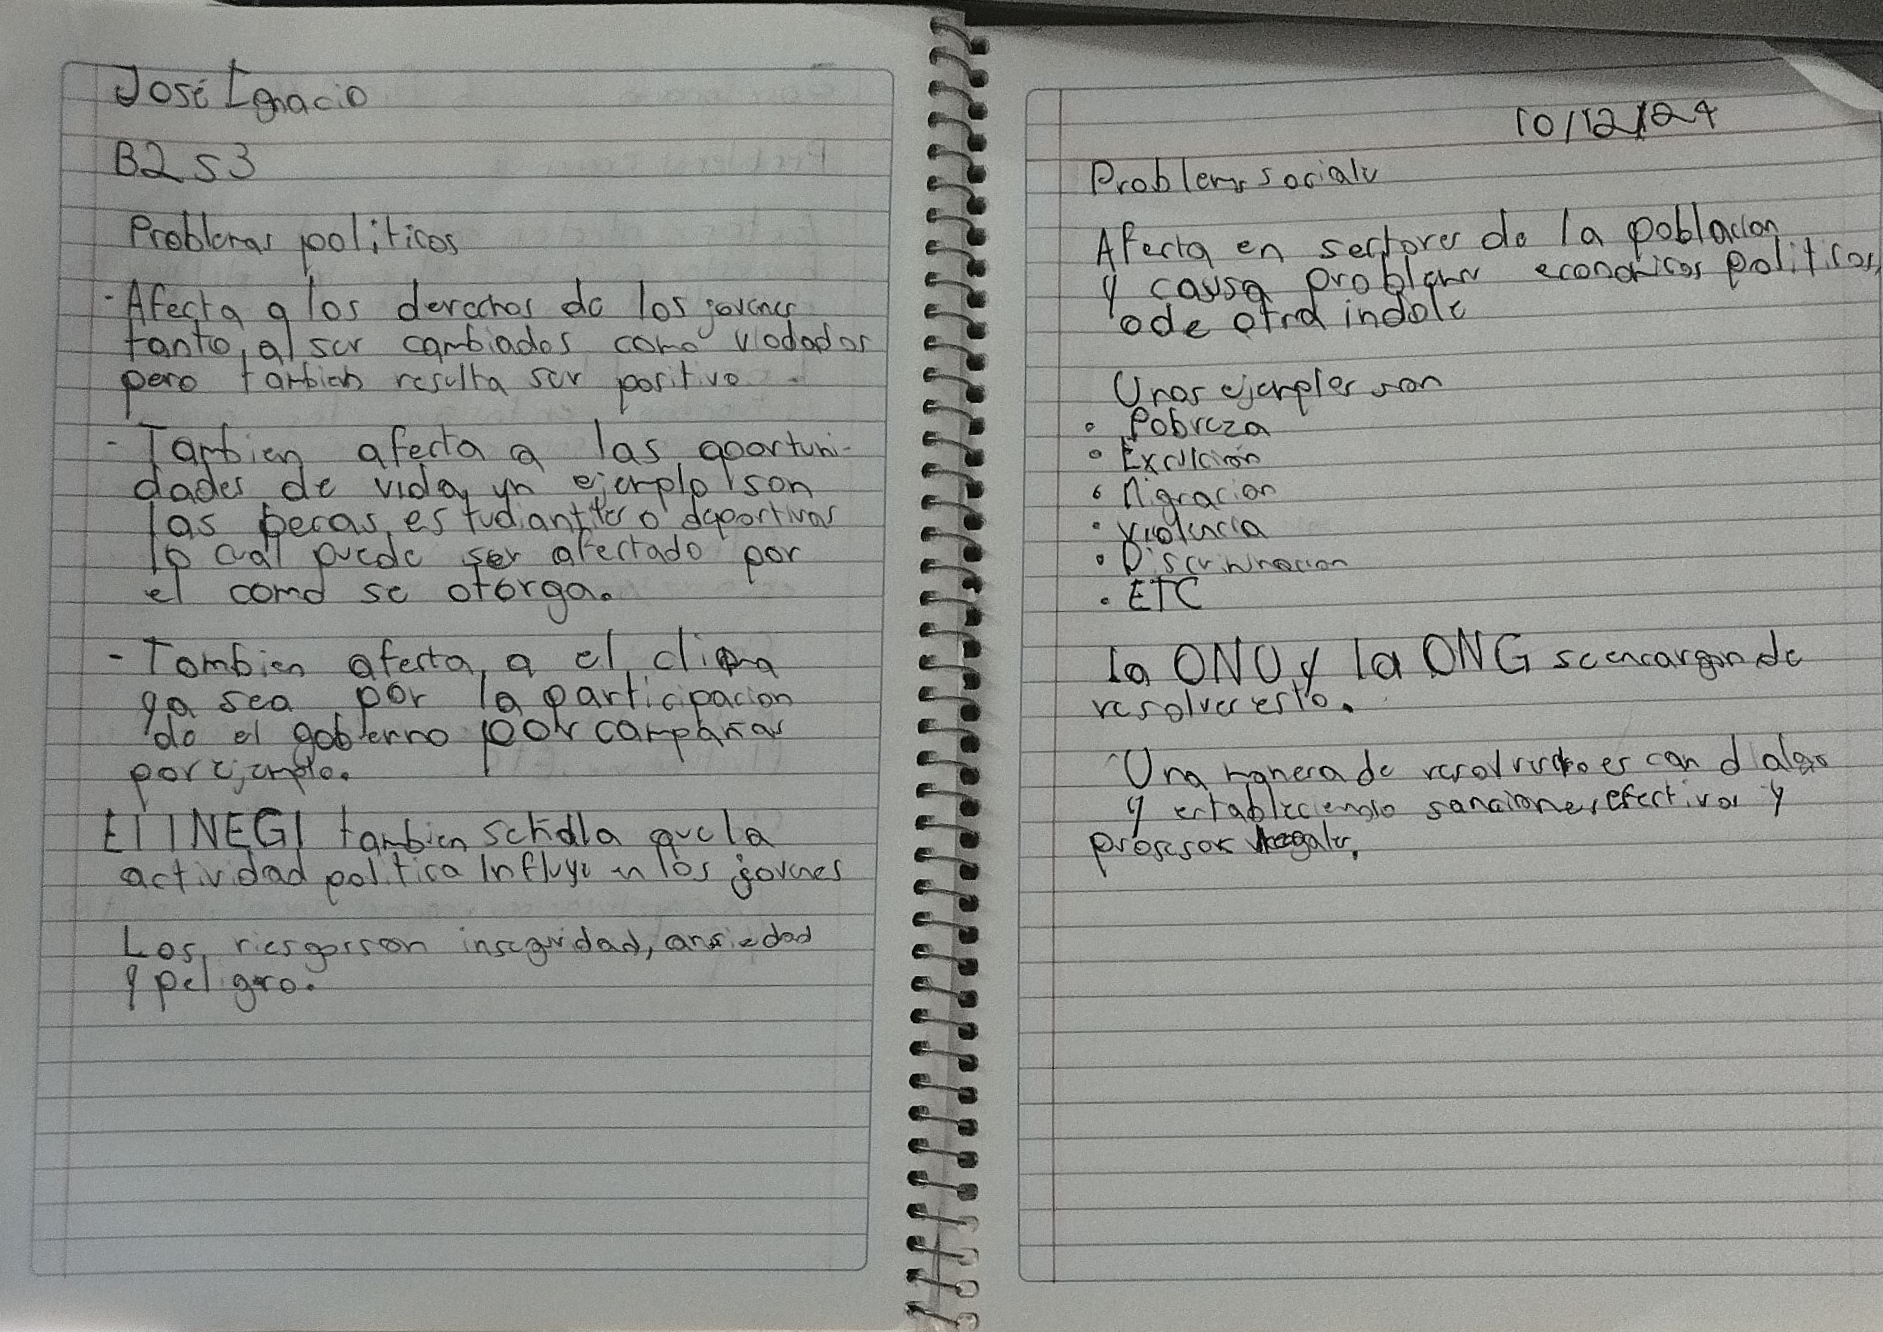 José Ignacio
B2 S3
Problemas políticos
- Afecta a los derechos de los jovenes
tanto, al ser cambiados como vedados
pero tambien resulta ser positivo.
- Tambien afecta a las oportuni-
dades de vida, un ejemplo son
las becas estudiantiles o deportivas
lo cual puede ser afectado por
el como se otorga.
- Tambien afecta a el clima
ya sea por la participacion
de el gobierno por campañas
por ejemplo.
El INEGI tambien señala que la
actividad politica Influye en los jovenes
Los riesgos son inseguridad, ansiedad
y peligro.
10/12/24
Problemas sociales
Afecta en sectores de la poblacion
y causa problemas economicos politicos,
o de otra indole
Unos ejemplos son
• Pobreza
• Exclucion
• Migracion
• Violencia
• Discriminacion
• ETC
la ONU y la ONG se encargan de
resolver esto.
Una manera de es con dialogo
y estableciendo sanciones efectivas y
prosesos legales.